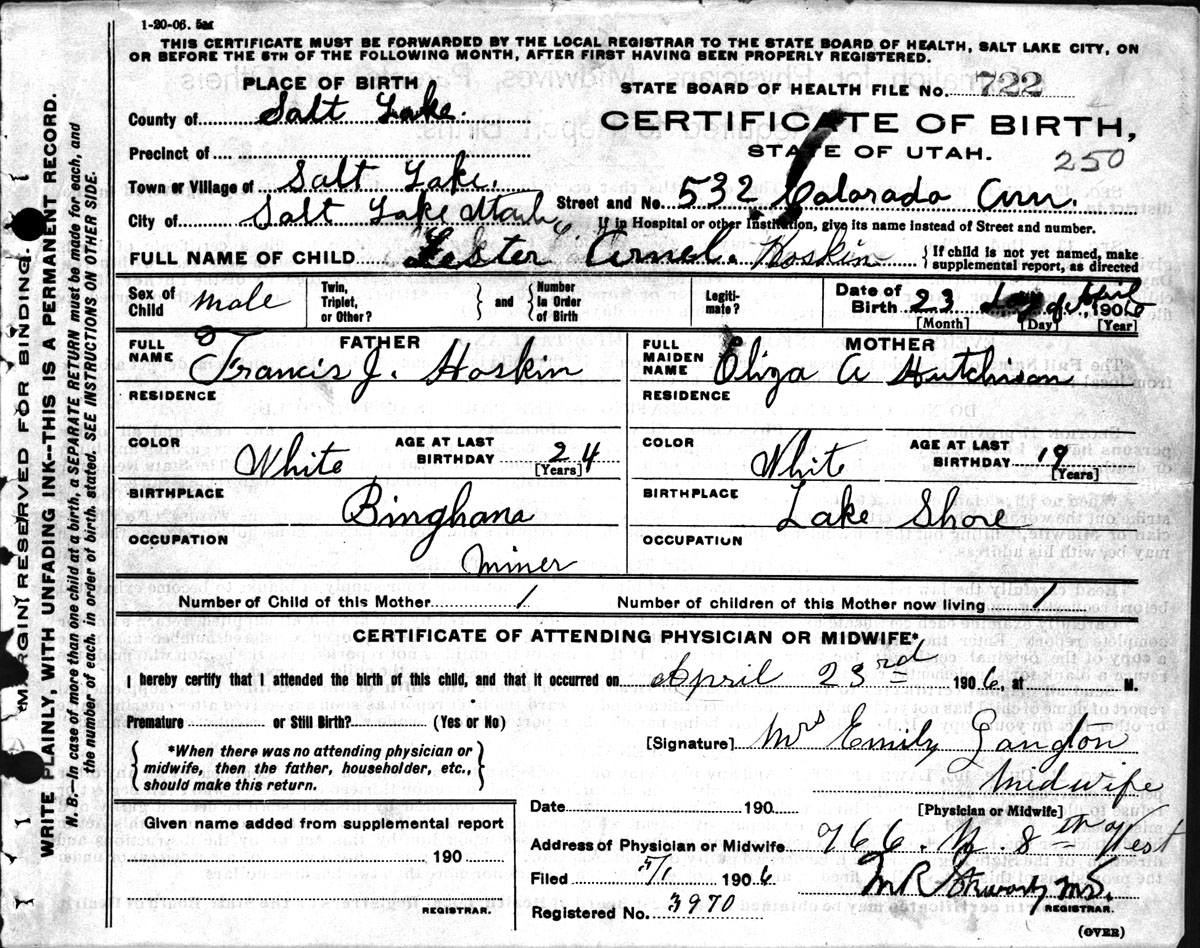 1-20-06.
THIS CERTIFICATE MUST BE FORWARDED BY THE LOCAL REGISTRAR TO THE STATE BOARD OF HEALTH, SALT LAKE CITY, ON
OR BEFORE THE 5TH OF THE FOLLOWING MONTH, AFTER FIRST HAVING BEEN PROPERLY REGISTERED.
PLACE OF BIRTH
STATE BOARD OF HEALTH FILE No. 722
County of Salt Lake.
CERTIFICATE OF BIRTH,
Precinct of
STATE OF UTAH.
250
Town or Village of Salt Lake.
Street and No. 532 Colorado
City of Salt Lake Utah
If in Hospital or other Institution, give its name instead of Street and number.
FULL NAME OF CHILD Lester Arnel. Hoskin
{ If child is not yet named, make
supplemental report, as directed
Sex of Child male
Twin, Triplet, or Other?
} and { Number In Order of Birth
Legiti-mate?
Date of Birth 23 April, 1906
[Month] [Day] [Year]
FATHER
FULL NAME Francis J. Hoskin
RESIDENCE
COLOR White
AGE AT LAST BIRTHDAY 24
[Years]
BIRTHPLACE Binghana
OCCUPATION miner
MOTHER
FULL MAIDEN NAME Eliza A Hutchison
RESIDENCE
COLOR White
AGE AT LAST BIRTHDAY 19
[Years]
BIRTHPLACE Lake Shore
OCCUPATION
Number of Child of this Mother 1
Number of children of this Mother now living 1
CERTIFICATE OF ATTENDING PHYSICIAN OR MIDWIFE*
I hereby certify that I attended the birth of this child, and that it occurred on April 23rd 1906, at M.
Premature or Still Birth? (Yes or No)
{ *When there was no attending physician or
midwife, then the father, householder, etc.,
should make this return. }
[Signature] Mrs Emily Langton
Midwife
[Physician or Midwife]
Date 190
Given name added from supplemental report
190
REGISTRAR.
Address of Physician or Midwife 766. N 8th West
Filed 5/1 1906
M R Stewart MD.
REGISTRAR.
Registered No. 3970
(OVER)
MARGIN RESERVED FOR BINDING.
WRITE PLAINLY, WITH UNFADING INK--THIS IS A PERMANENT RECORD.
N. B.--In case of more than one child at a birth, a SEPARATE RETURN must be made for each, and
the number of each, in order of birth, stated. SEE INSTRUCTIONS ON OTHER SIDE.